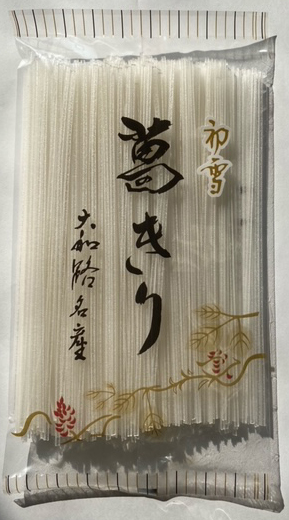 初雪
葛きり
大和路名産